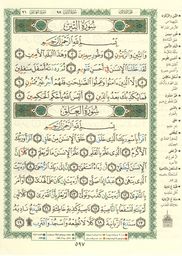 سُورَةُ التِّينِ
بِسْمِ اللَّهِ الرَّحْمَٰنِ الرَّحِيمِ
وَالتِّينِ وَالزَّيْتُونِ ١ وَطُورِ سِينِينَ ٢ وَهَٰذَا الْبَلَدِ الْأَمِينِ ٣
لَقَدْ خَلَقْنَا الْإِنسَانَ فِي أَحْسَنِ تَقْوِيمٍ ٤ ثُمَّ رَدَدْنَاهُ أَسْفَلَ
سَافِلِينَ ٥ إِلَّا الَّذِينَ آمَنُوا وَعَمِلُوا الصَّالِحَاتِ فَلَهُمْ أَجْرٌ غَيْرُ
مَمْنُونٍ ٦ فَمَا يُكَذِّبُكَ بَعْدُ بِالدِّينِ ٧ أَلَيْسَ اللَّهُ بِأَحْكَمِ الْحَاكِمِينَ ٨
سُورَةُ العَلَقِ
بِسْمِ اللَّهِ الرَّحْمَٰنِ الرَّحِيمِ
اقْرَأْ بِاسْمِ رَبِّكَ الَّذِي خَلَقَ ١ خَلَقَ الْإِنسَانَ مِنْ عَلَقٍ ٢ اقْرَأْ
وَرَبُّكَ الْأَكْرَمُ ٣ الَّذِي عَلَّمَ بِالْقَلَمِ ٤ عَلَّمَ الْإِنسَانَ مَا لَمْ يَعْلَمْ ٥
كَلَّا إِنَّ الْإِنسَانَ لَيَطْغَىٰ ٦ أَن رَّآهُ اسْتَغْنَىٰ ٧ إِنَّ إِلَىٰ رَبِّكَ الرُّجْعَىٰ ٨
أَرَأَيْتَ الَّذِي يَنْهَىٰ ٩ عَبْدًا إِذَا صَلَّىٰ ١٠ أَرَأَيْتَ إِن كَانَ عَلَى الْهُدَىٰ ١١
أَوْ أَمَرَ بِالتَّقْوَىٰ ١٢ أَرَأَيْتَ إِن كَذَّبَ وَتَوَلَّىٰ ١٣ أَلَمْ يَعْلَم بِأَنَّ اللَّهَ يَرَىٰ ١٤
كَلَّا لَئِن لَّمْ يَنتَهِ لَنَسْفَعًا بِالنَّاصِيَةِ ١٥ نَاصِيَةٍ كَاذِبَةٍ خَاطِئَةٍ ١٦ فَلْيَدْعُ نَادِيَهُ ١٧
سَنَدْعُ الزَّبَانِيَةَ ١٨ كَلَّا لَا تُطِعْهُ وَاسْجُدْ وَاقْتَرِب ١٩
٥٩٧